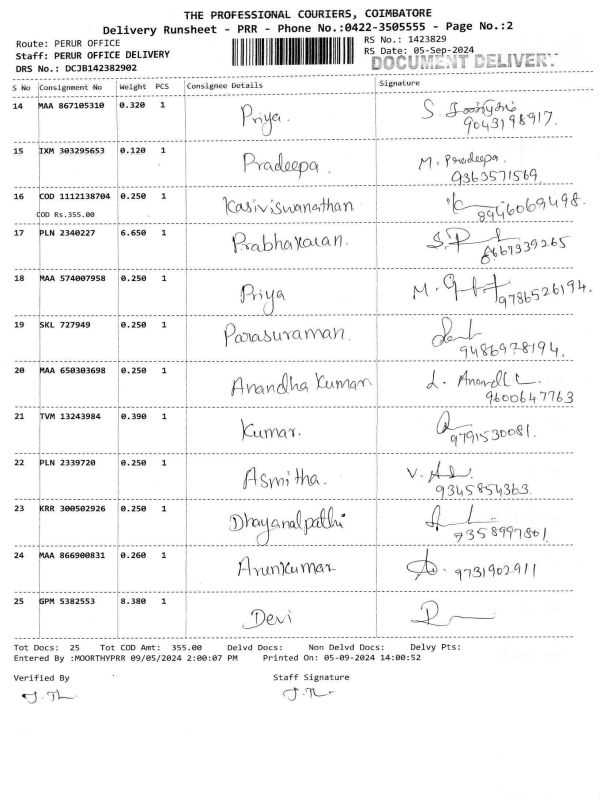 THE PROFESSIONAL COURIERS, COIMBATORE
Delivery Runsheet - PRR - Phone No.:0422-3505555 - Page No.:2
Route: PERUR OFFICE
RS No.: 1423829
Staff: PERUR OFFICE DELIVERY
RS Date: 05-Sep-2024
DRS No.: DCJB142382902
DOCUMENT DELIVERY
S No Consignment No Weight PCS Consignee Details Signature
14 MAA 867105310 0.320 1 Priya. S.
9043198917.
15 IXM 303295653 0.120 1 Pradeepa. M. Pradeepa.
9363571569.
16 COD 1112138704 0.250 1 Kasiviswanathan
8946069498.
COD Rs.355.00
17 PLN 2340227 6.650 1 Prabhakaran.
8667339265
18 MAA 574007958 0.250 1 Priya M.
9786526194.
19 SKL 727949 0.250 1 Parasuraman.
9486978194.
20 MAA 650303698 0.250 1 Anandha Kumar
9600647763
21 TVM 13243984 0.390 1 Kumar.
9791530081.
22 PLN 2339720 0.250 1 Asmitha. V.
9345854363.
23 KRR 300502926 0.250 1 Dhayanalpathi
9358997801
24 MAA 866900831 0.260 1 Arunkumar 9731902911
25 GPM 5382553 8.380 1 Devi
Tot Docs: 25 Tot COD Amt: 355.00 Delvd Docs: Non Delvd Docs: Delvy Pts:
Entered By :MOORTHYPRR 09/05/2024 2:00:07 PM Printed On: 05-09-2024 14:00:52
Verified By Staff Signature